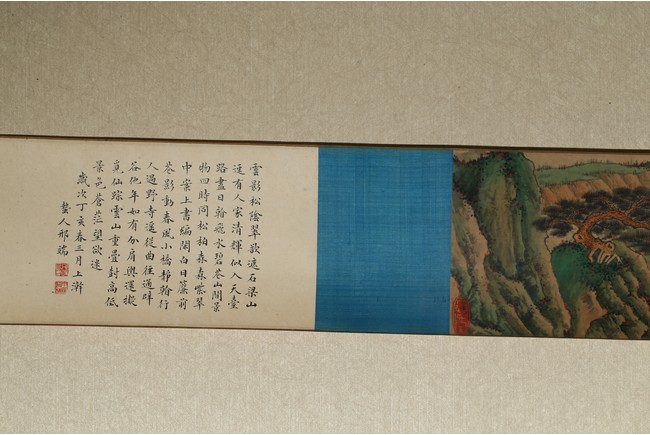 雲影松陰翠欲遮石梁山
逕有人家清輝似入天臺
路盡日翰飛水碧巷山間景
物四時同松柏森森紫翠
中案上書編閑白日簾前
巷影動春風小橋靜翰行
人過野寺還從曲徑通醉
谷他年如有分肩輿還擬
覓仙踪雲山重疊封高低
景色蒼茫望欲迷
歲次丁亥春三月上澣